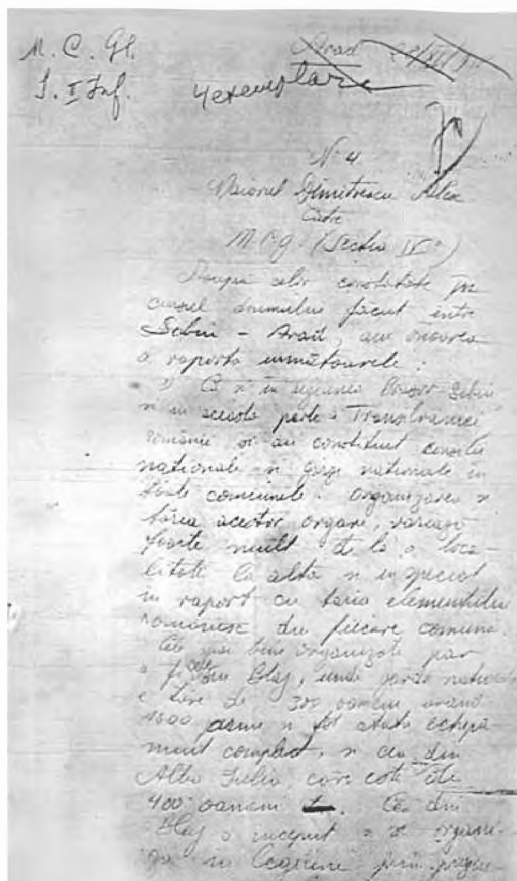 M. C. Gl.
S. II Inf.
Arad
4 exemplare
N. 4
Maiorul Dimitrescu Alex
Catre
M.C.G. (Sectia IV a)
Asupra celor constatate in
cursul drumului făcut între
Sibiu - Arad, am onoarea
a raporta următoarele:
1) Că si in regiunea Brasov Sibiu
si in aceasta parte a Transilvaniei
românii si-au constituit consilii
nationale si gărzi nationale in
toate comunele. Organizarea si
tăria acestor organe, variază
foarte mult de la o loca-
litate la alta si in special
in raport cu taria elementului
românesc din fiecare comuna.
Cele mai bine organizate par
a fi cele din Blaj, unde garda nationala
e tare de 300 oameni avand
1500 arme si tot atata echipa-
ment complect, si cea din
Alba Iulia, care este de
400 oameni. Cea din
Blaj a inceput a se organi-
za in Legiune prin